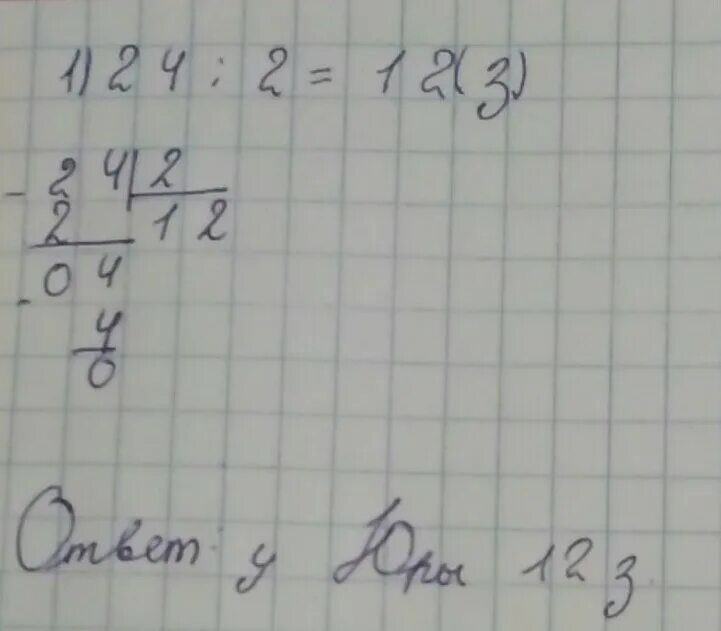 1) 24 : 2 = 12(з)
- 24 | 2
2 12
- 04
4
0
Ответ у Юры 12 з